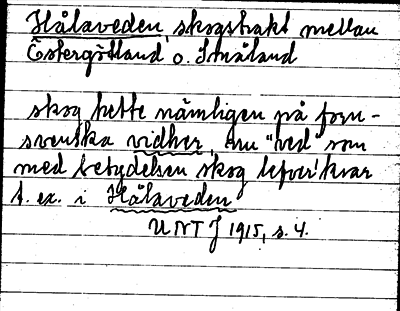 Hålaveden, skogstrakt mellan
Östergötland o. Småland
skog hette nämligen på forn-
svenska vidher, nu "ved" som
med betydelsen skog lefver kvar
t. ex. i Hålaveden
UNTJ 1915, s. 4.